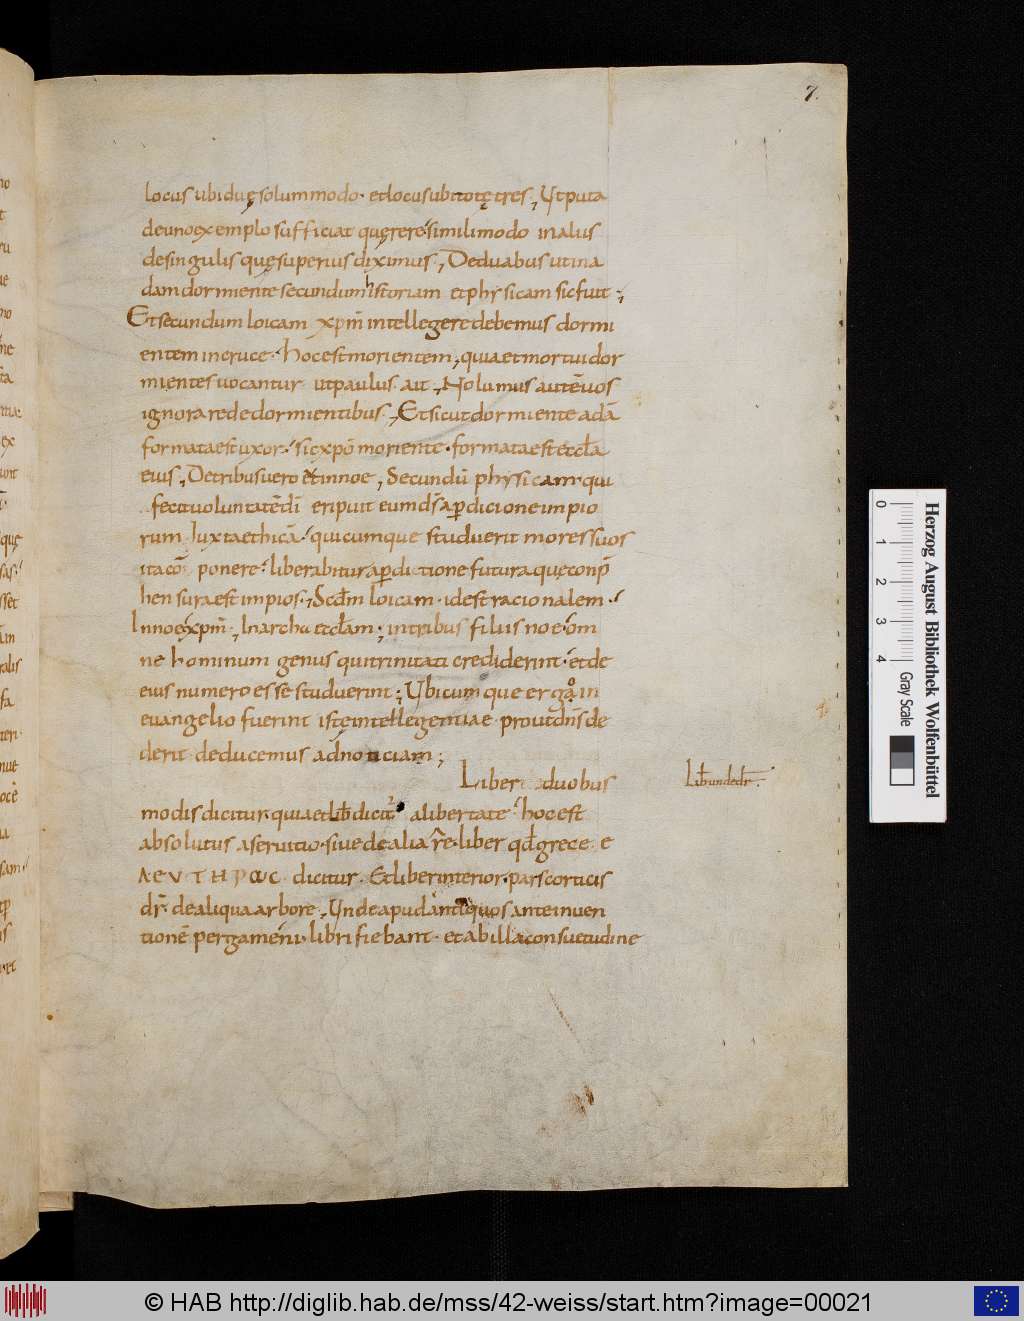 7.
locus ubi duę solummodo · et locus ubi totę tres; Ut puta
de uno exemplo sufficiat quęrere simili modo in alus
de singulis quę superius diximus; De duabus ut ina
dam dormiente secundum historiam et physicam sic fuit;
Et secundum loicam xpm̄ intellegere debemus dormi
entem in cruce · hoc est morientem, quia et mortui dor
mientes uocantur ut paulus ait; Nolumus autē uos
ignorare de dormientibus; Et sicut dormiente adā
formata est uxor · sic xpō moriente · formata est eccła
eius; De tribus uero ut in noe; Secundū physicam qui
fecit uoluntatē dī eripuit eum dś a ꝑdicione impio
rum Iuxta ethicā · quicumque studuerit mores suos
itacō ponere · liberabitur a ꝑditione futura quę conp̄
hensura est impios; Scdm̄ loicam · id est racionalem ·
In noe xpm̄; In archa eccłam; in tribus filiis noe · om
ne hominum genus qui trinitati crediderint · et de
eius numero esse studuerint; Ubicumque ergo in
euangelio fuerint iste intellegentiae · prout dn̄s de
derit · deducemus ad noticiam;
Liber duobus
modis dicitur · quia et lib̄ dicit᷑ a libertate · hoc est
absolutus a seruitio · siue de alia rē · liber qd̄ grece e
ΛΕΥΤΗΡΩC dicitur · Et liber interior · pars corticis
dr̄ · de aliqua arbore, Unde apud antiquos ante inuen
tionē pergameni · libri fiebant · et ab illa consuetudine
Lib̄ unde dr̄.
0 1 2 3 4
Herzog August Bibliothek Wolfenbüttel
Gray Scale
© HAB http://diglib.hab.de/mss/42-weiss/start.htm?image=00021